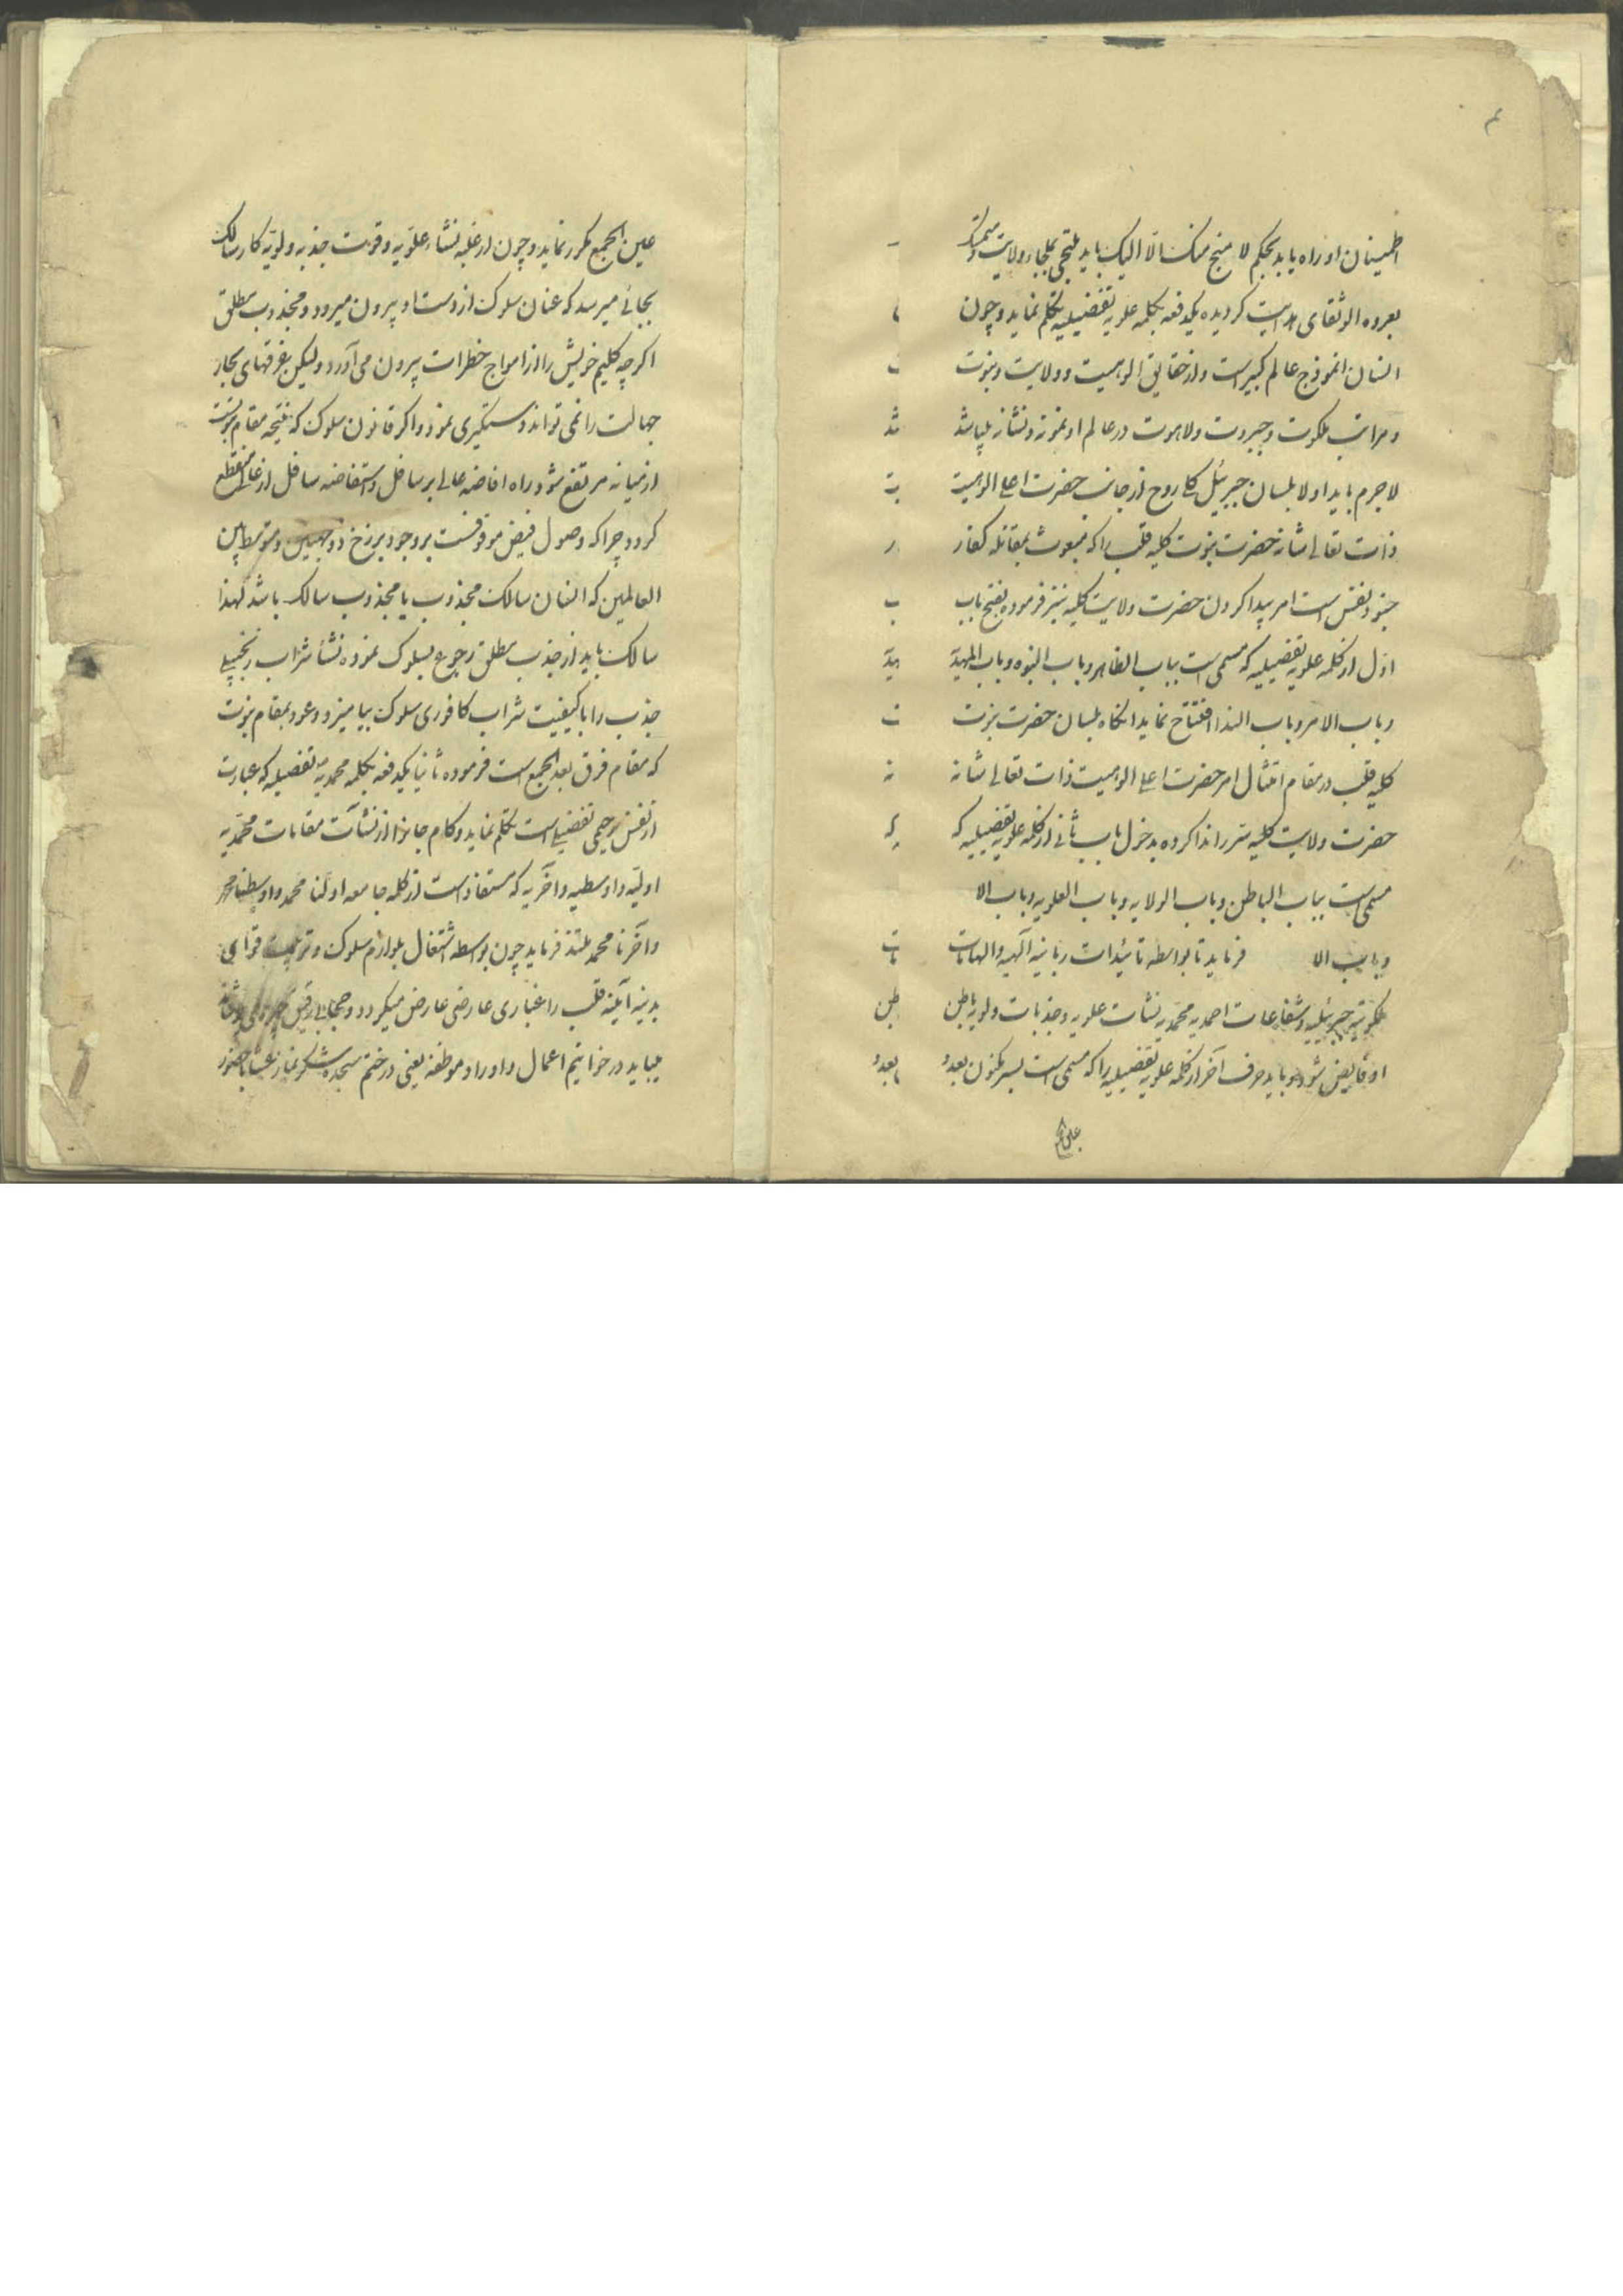 ۴
اطمینان او راه یابد بحکم لا منجی منک الا الیک باید ملتجی بملجاء ولایت و متمسک
بعروه الوثقای هدایت کردیده یکدفعه بکلمه علویه تفضیلیه تکلم نماید و چون
انسان انموذج عالم کبیر است و از حقایق الوهیت و ولایت و نبوت
و مراتب ملکوت و جبروت و لاهوت در عالم او نمونه و نشانه میباشد
لاجرم باید اولا بلسان جبرئیل کلی روح از جانب حضرت اعلی الوهیت
ذات تعالی شانه حضرت نبوت کلیه قلب را که مبعوث بمقاتله کفار
جنود نفس است امر پیدا کردن حضرت ولایت کلیه سر فرموده بفتح باب
اول از کلمه علویه تفضیلیه که مسمی است بباب الظاهر و باب النبوه و باب المهدیه
و باب الامر و باب الندا افتتاح نماید انکاه بلسان حضرت نبوت
کلیه قلب در مقام امتثال امر حضرت اعلی الوهیت ذات تعالی شانه
حضرت ولایت کلیه سر را ندا کرده بدخول باب ثانی از کلمه علویه تفضیلیه که
مسمی است بباب الباطن و باب الولایه و باب العلویه و باب الا
و باب الا فرماید تا بواسطه تائیدات ربانیه آلهیه و الهامات
ملکوتیه جبرئیلیه و شفاعات احمدیه محمدیه نشات علویه و جذبات ولویه باطن
او فایض شود و باید حرف آخر از کلمه علویه تفضیلیه را که مسمی است بسر مکنون بعدد
عین الجمع مکرر نماید و چون از غلبه نشاء علویه و قوت جذبه ولویه کار سالک
بجائی میرسد که عنان سلوک از دست او بیرون میرود و مجذوب مطلق
اکرچه کلیم خویش را از امواج خطرات بیرون می آورد ولیکن غرقهای بحار
جهالت را نمی تواند دستکیری نمود و اکر قانون سلوک که نتیجه مقام نبوت
از میانه مرتفع شود راه افاضه عالی بر سافل و استفاضه سافل از عالی منقطع
کردد چرا که وصول فیض موقوفست بر وجود برزخ ذو جهتین و متوسط بین
العالمین که انسان سالک مجذوب یا مجذوب سالک باشد لهذا
سالک باید از جذب مطلق رجوع بسلوک نموده نشأ شراب زنجبیلی
جذب را با کیفیت شراب کافوری سلوک بیامیزد و عود بمقام نبوت
که مقام فرق بعد الجمع است فرموده ثانیا یکدفعه بکلمه محمدیه تفضیلیه که عبارت
از نفس رحیمی تفضیلی است تکلم نماید و کام جانرا از نشآت مقامات محمدیه
اولیه و اوسطیه و آخریه که مستفاد است از کلمه جامعه اولنا محمد و اوسطنا محمد
و آخرنا محمد ملتذ فرماید چون بواسطه اشتغال بلوازم سلوک و تربیت قوای
بدنیه آینه قلب را غباری عارضی عارض میکردد و حجابی رقیق
میباید در خواتیم اعمال و اوراد موظفه یعنی در ختم سجده شکر نماز عشا با حضور